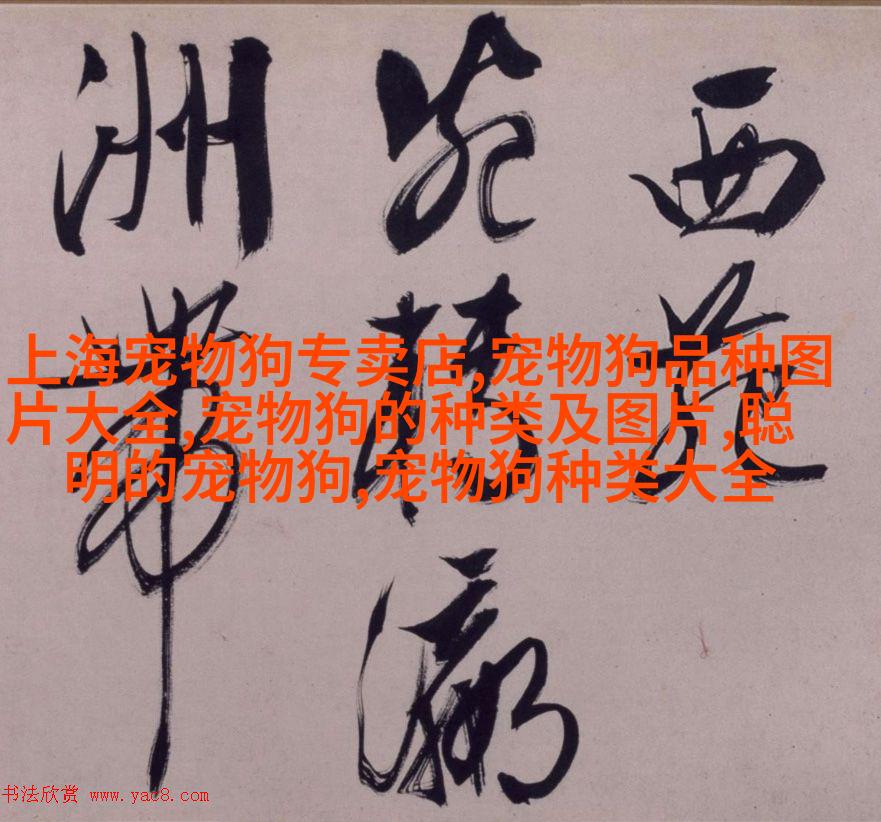 西苑
瀛
洲帶
上海宠物狗专卖店,宠物狗品种图
片大全,宠物狗的种类及图片,聪
明的宠物狗,宠物狗种类大全
书法欣赏 www.yac8.com